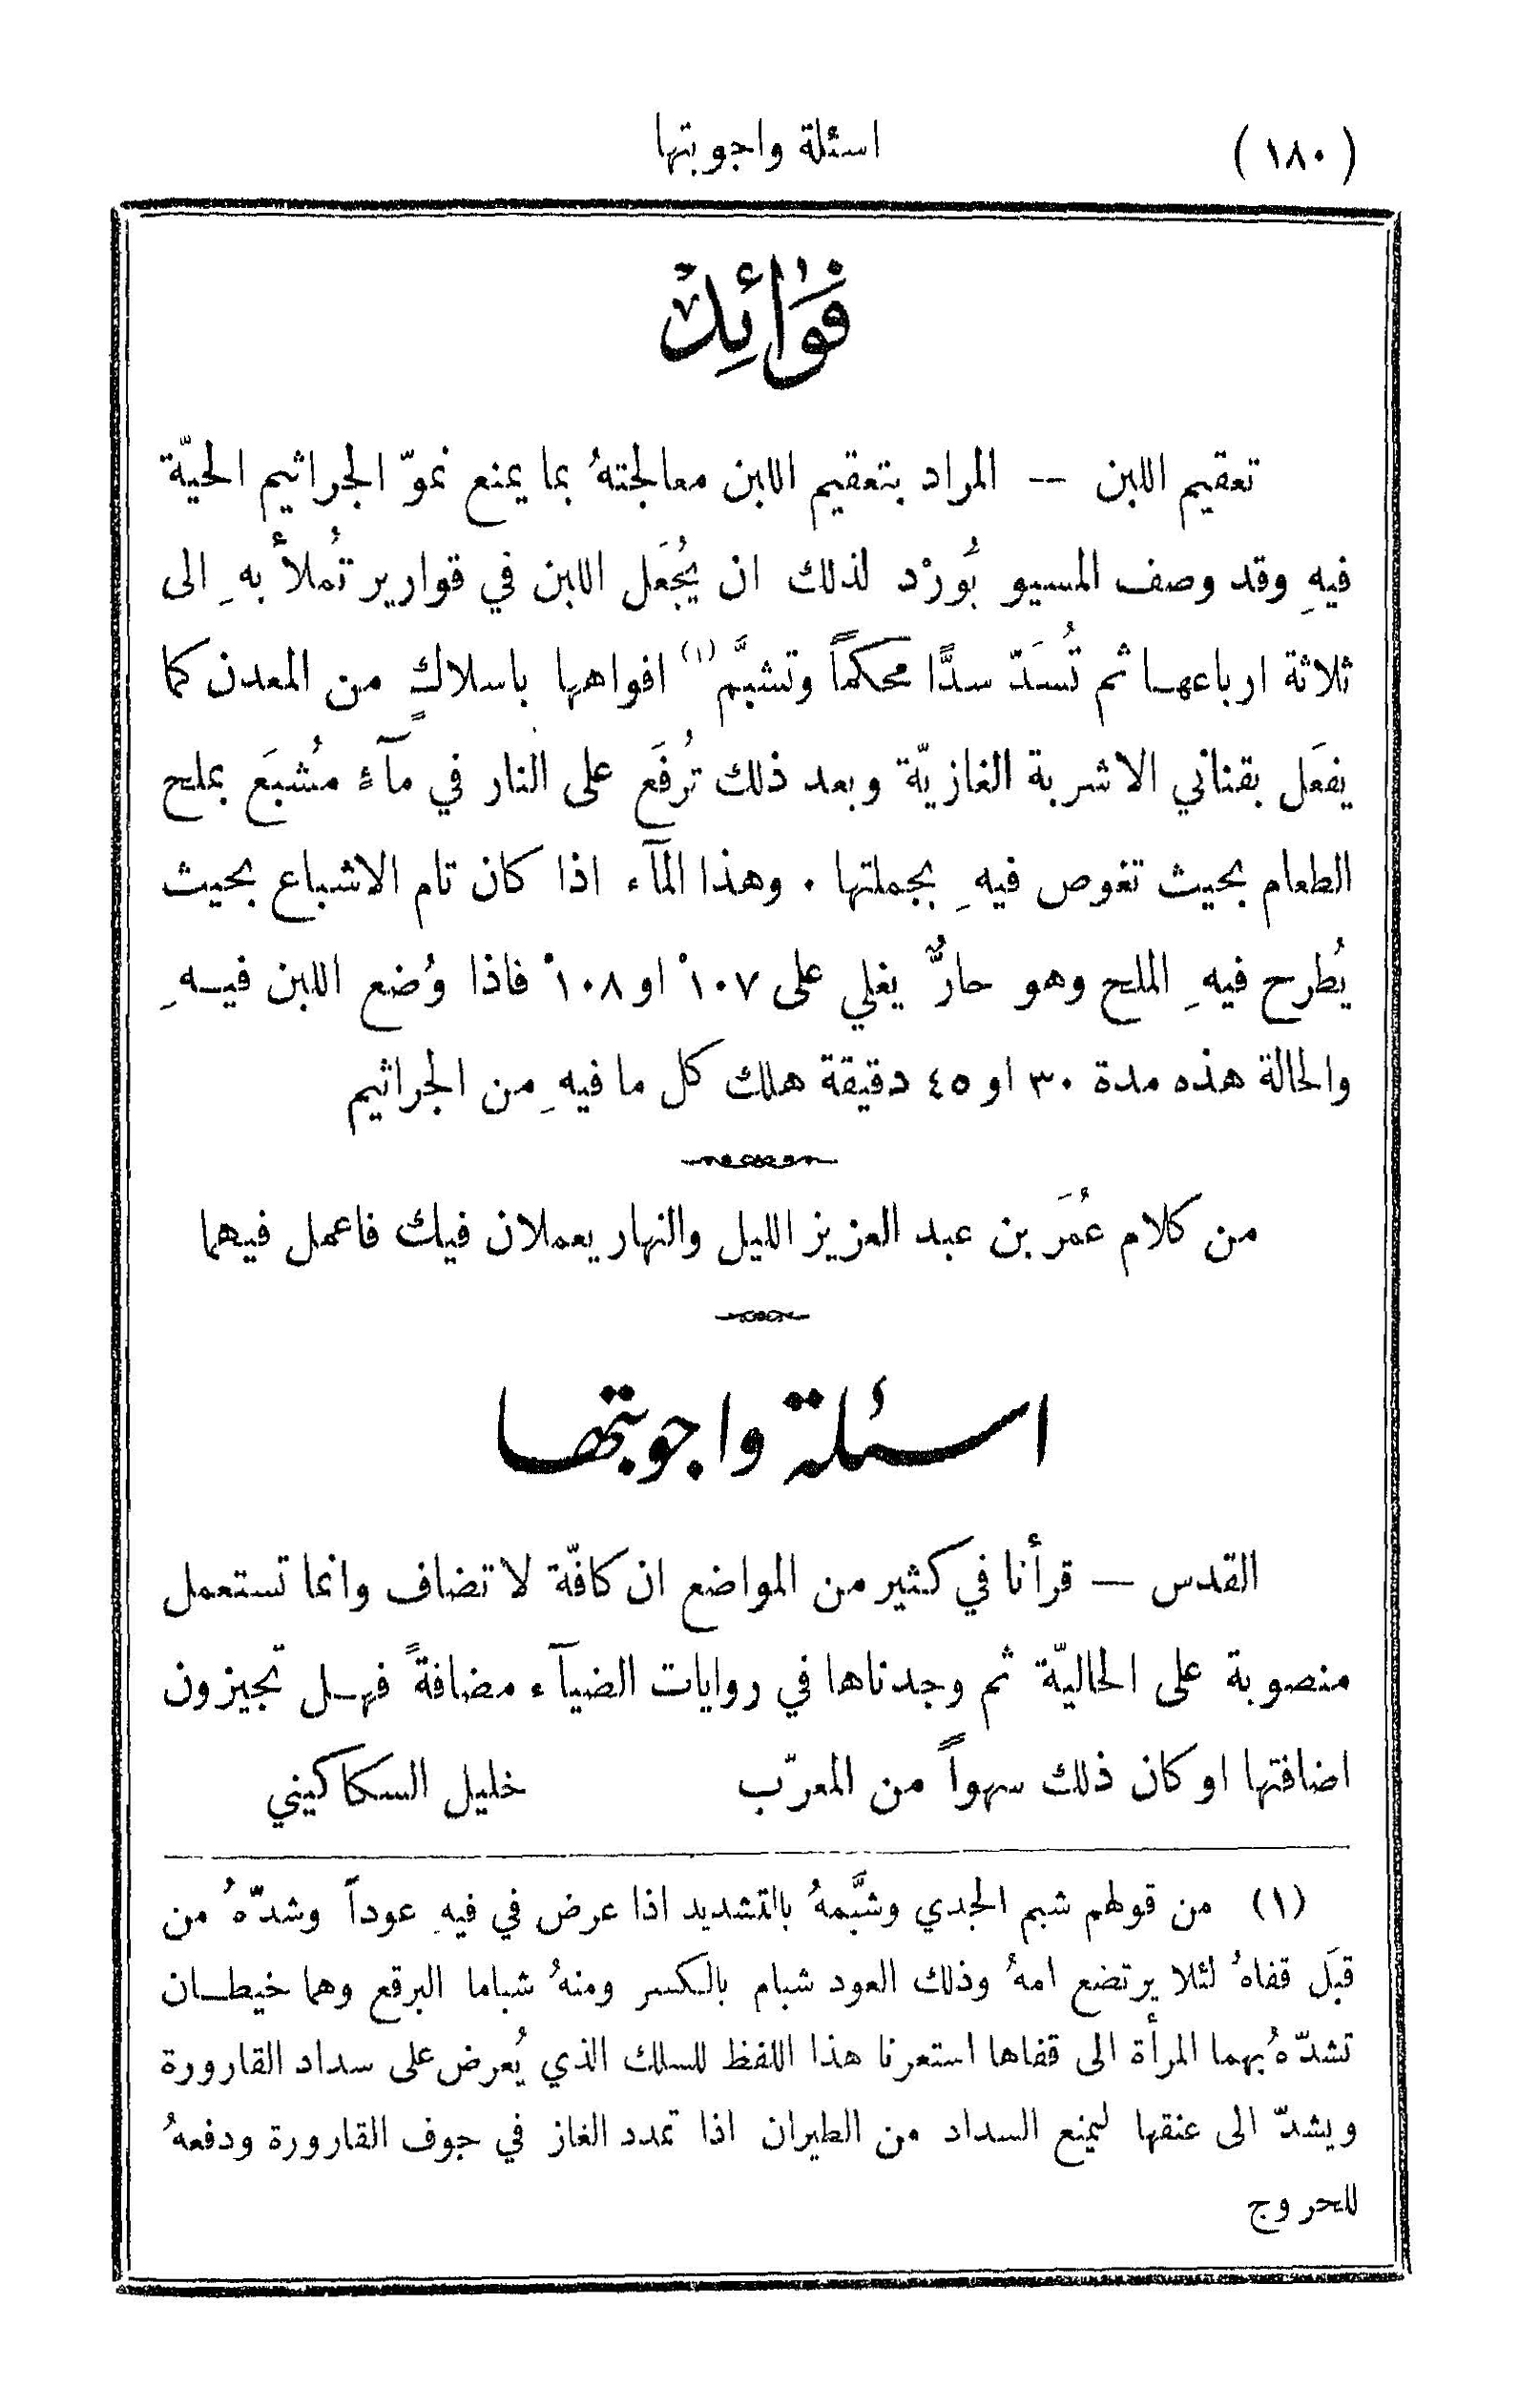 (١٨٠) اسئلة واجوبتها
فَوَائِدُ
تعقيم اللبن — المراد بتعقيم اللبن معالجتهُ بما يمنع نموّ الجراثيم الحيّة
فيهِ وقد وصف المسيو بُورْد لذلك ان يُجعَل اللبن في قوارير تُملأ بهِ الى
ثلاثة ارباعها ثم تُسَدّ سدًّا محكماً وتشبَّم (١) افواهها باسلاكٍ من المعدن كما
يفعَل بقناني الاشربة الغازيّة وبعد ذلك تُرفَع على النار في مآءٍ مُشبَع بملح
الطعام بحيث تغوص فيهِ بجملتها . وهذا المآء اذا كان تام الاشباع بحيث
يُطرح فيهِ الملح وهو حارٌّ يغلي على ١٠٧° او ١٠٨° فاذا وُضع اللبن فيهِ
والحالة هذه مدة ٣٠ او ٤٥ دقيقة هلك كل ما فيهِ من الجراثيم
من كلام عُمَر بن عبد العزيز الليل والنهار يعملان فيك فاعمل فيهما
اسئلة واجوبتها
القدس — قرأنا في كثير من المواضع ان كافّة لا تضاف وانما تستعمل
منصوبة على الحاليّة ثم وجدناها في روايات الضيآء مضافةً فهل تجيزون
اضافتها او كان ذلك سهواً من المعرّب خليل السكاكيني
(١) من قولهم شبم الجدي وشبَّمهُ بالتشديد اذا عرض في فيهِ عوداً وشدّهُ من
قبَل قفاهُ لئلا يرتضع امهُ وذلك العود شبام بالكسر ومنهُ شباما البرقع وهما خيطان
تشدّهُ بهما المرأة الى قفاها استعرنا هذا اللفظ للسلك الذي يُعرض على سداد القارورة
ويشدّ الى عنقها ليمنع السداد من الطيران اذا تمدد الغاز في جوف القارورة ودفعهُ
للحروج